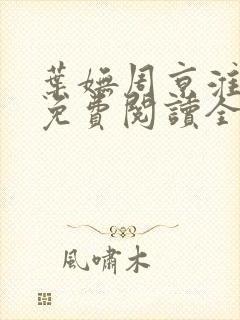 葉嫵周京淮
免費閱讀全
風嘯木